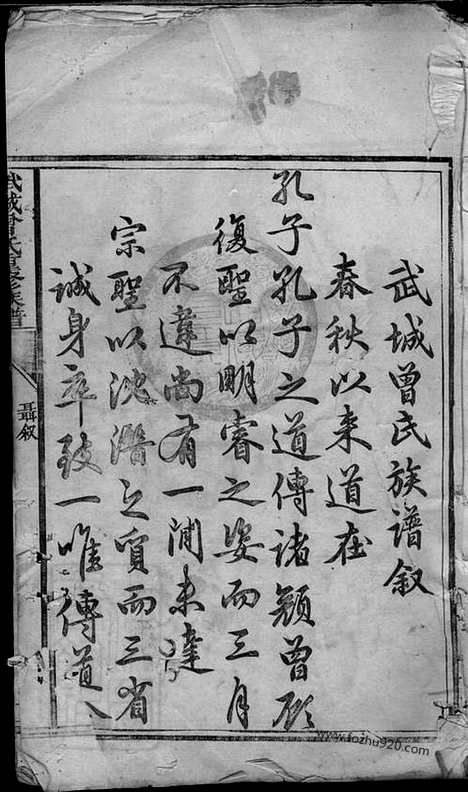 武城曾氏族譜叙
春秋以来道在
孔子孔子之道傳諸顏曾顧
復聖以明睿之姿而三月
不違尚有一間未達
宗聖以沈潛之質而三省
誠身卒致一唯傳道
武城曾氏重修族譜
聶叙
www.fozhu920.com